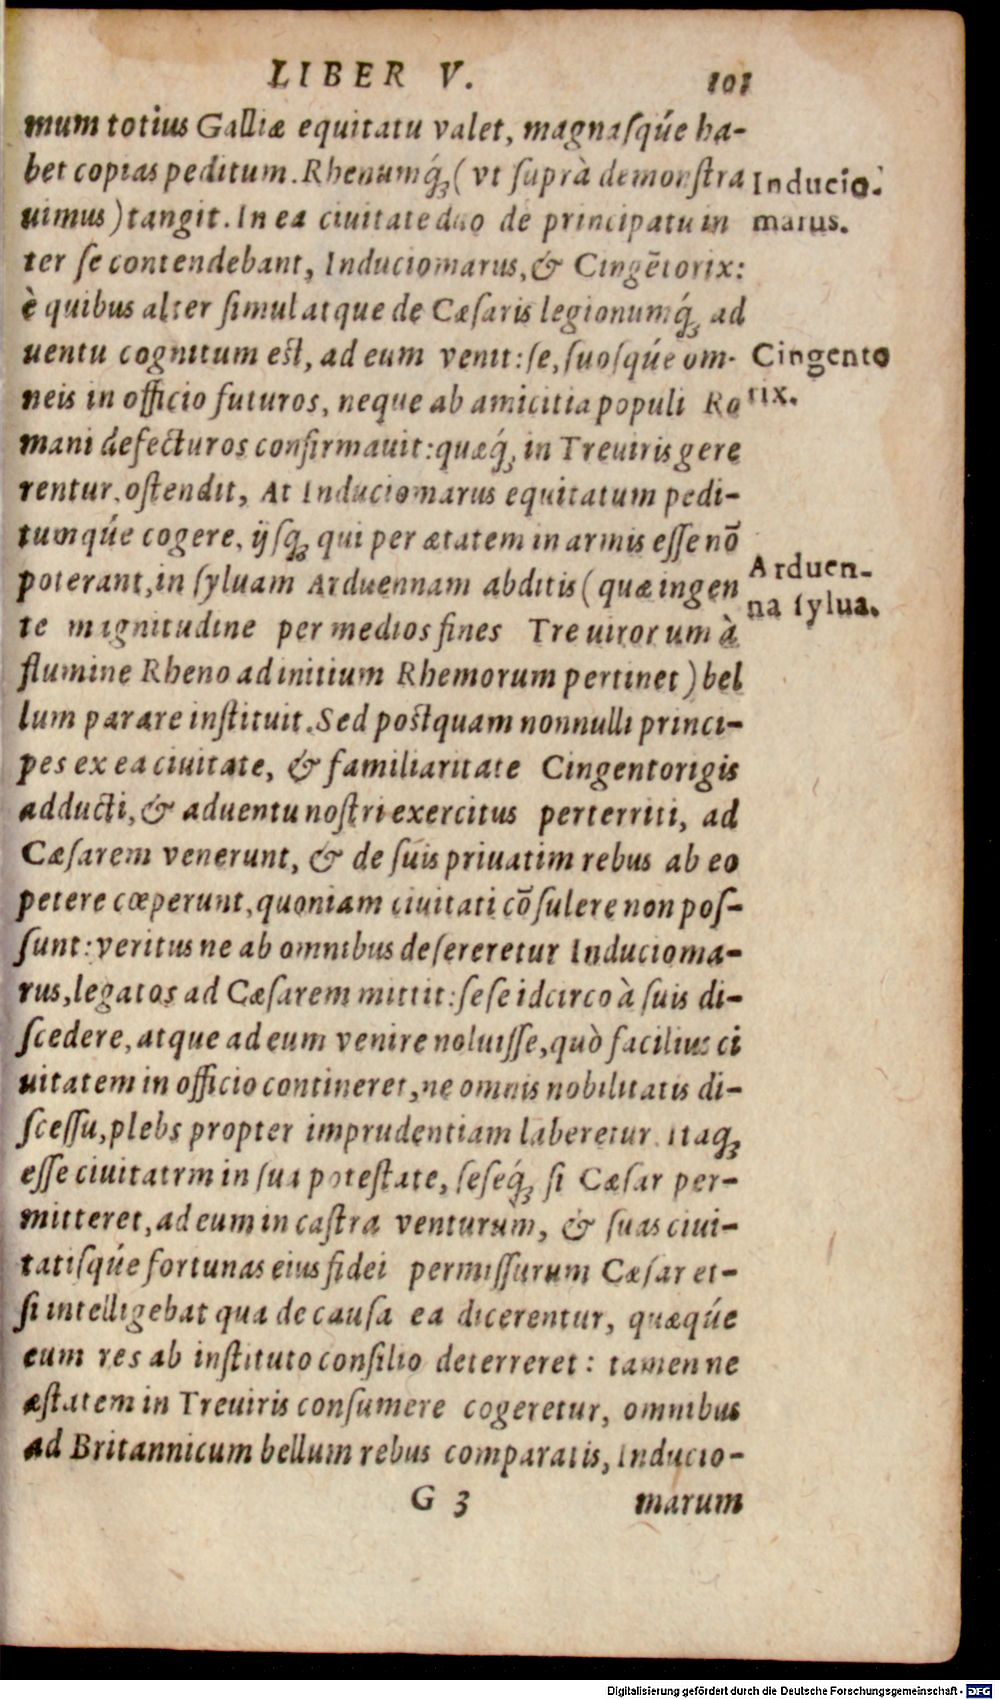 LIBER V. 101
mum totius Galliæ equitatu valet, magnasq́ue ha-
bet copias peditum. Rhenumq́; (vt suprà demonstra
uimus) tangit. In ea ciuitate duo de principatu in
ter se contendebant, Induciomarus, & Cingētorix:
è quibus alter simul atque de Cæsaris legionumq́; ad
uentu cognitum est, ad eum venit: se, suosq́ue om-
neis in officio futuros, neque ab amicitia populi Ro
mani defecturos confirmauit: quæq́; in Treuiris gere
rentur, ostendit, At Induciomarus equitatum pedi-
tumq́ue cogere, ijsq; qui per ætatem in armis esse nō
poterant, in syluam Arduennam abditis (quæ ingen
te magnitudine per medios fines Treuirorum à
flumine Rheno ad initium Rhemorum pertinet) bel
lum parare instituit. Sed postquam nonnulli princi-
pes ex ea ciuitate, & familiaritate Cingentorigis
adducti, & aduentu nostri exercitus perterriti, ad
Cæsarem venerunt, & de suis priuatim rebus ab eo
petere cœperunt, quoniam ciuitati cōsulere non pos-
sunt: veritus ne ab omnibus desereretur Inducioma-
rus, legatos ad Cæsarem mittit: sese idcirco à suis di-
scedere, atque ad eum venire noluisse, quò facilius ci
uitatem in officio contineret, ne omnis nobilitatis di-
scessu, plebs propter imprudentiam laberetur. Itaq;
esse ciuitatrm in sua potestate, seseq́; si Cæsar per-
mitteret, ad eum in castra venturum, & suas ciui-
tatisq́ue fortunas eius fidei permissurum Cæsar et-
si intelligebat qua de causa ea dicerentur, quæq́ue
eum res ab instituto consilio deterreret: tamen ne
æstatem in Treuiris consumere cogeretur, omnibus
ad Britannicum bellum rebus comparatis, Inducio-
G 3 marum
Inducio-
marus.
Cingento
rix.
Arduen-
na sylua.
Digitalisierung gefördert durch die Deutsche Forschungsgemeinschaft - DFG